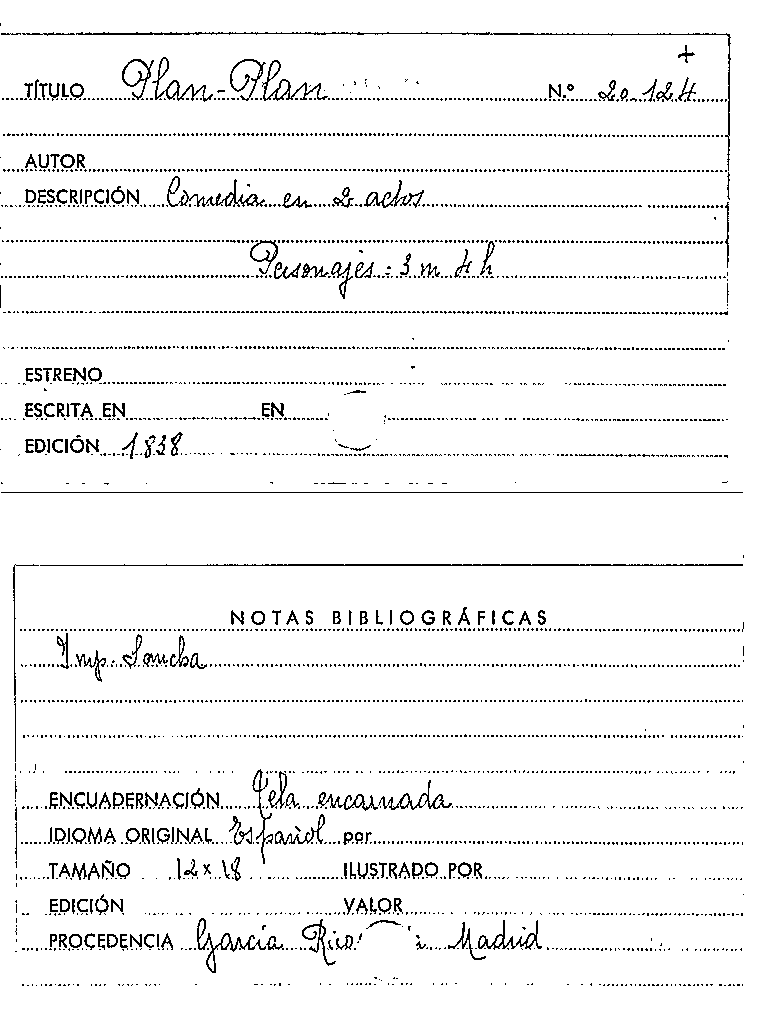 +
TÍTULO Plan-Plan N.º 20.124
AUTOR
DESCRIPCIÓN Comedia en 2 actos
Personajes: 3 m 4 h
ESTRENO
ESCRITA EN EN
EDICIÓN 1838
NOTAS BIBLIOGRÁFICAS
Imp. Sancha
ENCUADERNACIÓN Tela encarnada
IDIOMA ORIGINAL Español por
TAMAÑO 12 x 18 ILUSTRADO POR
EDICIÓN VALOR
PROCEDENCIA García Rico Madrid